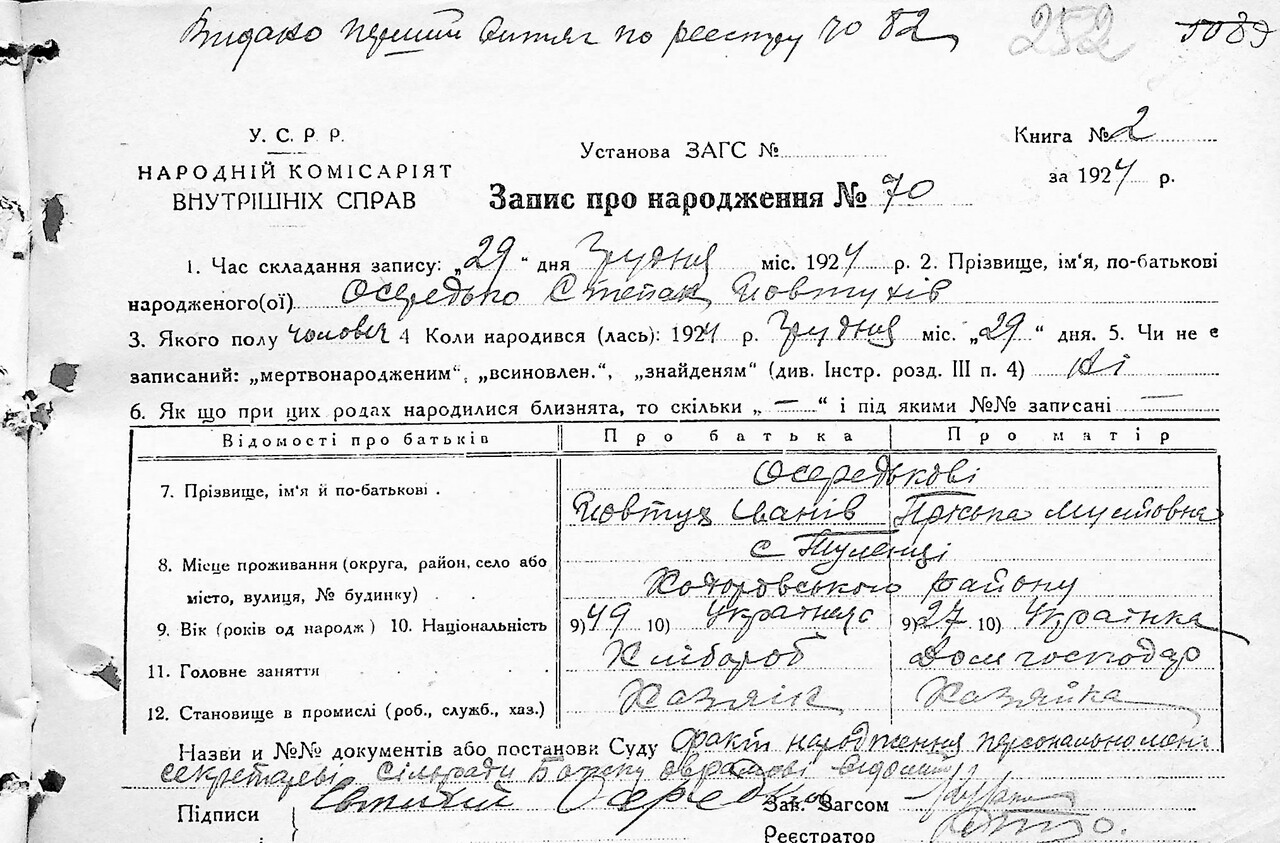 Видано перший витяг по реестру № 82
252
У. С. Р. Р.
НАРОДНІЙ КОМІСАРІЯТ
ВНУТРІШНІХ СПРАВ
Установа ЗАГС №
Книга № 2
за 1924 р.
Запис про народження № 70
1. Час складання запису: „29“ дня Грудня міс. 1924 р. 2. Прізвище, ім'я, по-батькові
народженого(ої) Осередько Степан Йовтухів
3. Якого полу чоловіч 4 Коли народився (лась): 1924 р. Грудня міс. „29“ дня. 5. Чи не є
записаний: „мертвонародженим“, „всиновлен.“, „знайденям“ (див. Інстр. розд. III п. 4) Ні
6. Як що при цих родах народилися близнята, то скільки „ — “ і під якими №№ записані —
Відомості про батьків Про батька Про матір
Осередькові
7. Прізвище, ім'я й по-батькові .
Йовтух Іванів
с Туленці
8. Місце проживання (округа, район, село або
Ходоровського району
місто, вулиця, № будинку) . .
9. Вік (років од народж) 10. Національність 9) 49 10) Українець 9) 27 10) Українка
11. Головне заняття Хлібороб Дом господар
12. Становище в промислі (роб., служб., хаз.) Хазяїн Хазяйка
Назви и №№ документів або постанови Суду Факт народження персонально мені
секретареві сільради
Підписи Осередько Зав. Загсом
Реєстратор